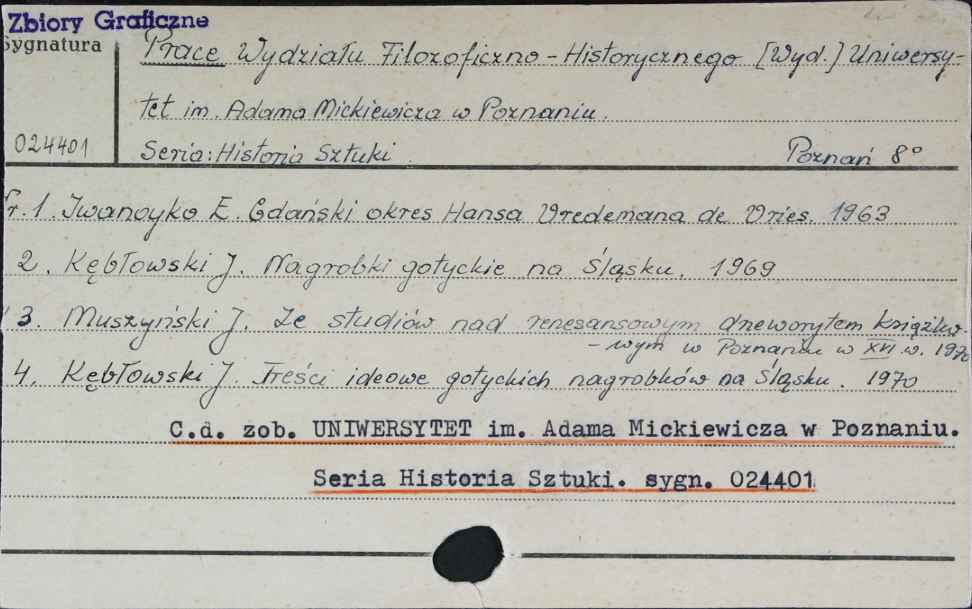 Zbiory Graficzne
Sygnatura
Prace Wydziału Filozoficzno-Historycznego [Wyd.] Uniwersy-
tet im. Adama Mickiewicza w Poznaniu.
024401
Seria: Historia Sztuki Poznań 8°
Nr. 1. Iwanoyko E. Gdański okres Hansa Vredemana de Vries. 1963
2. Kębłowski J. Nagrobki gotyckie na Śląsku. 1969
3. Muszyński J. Ze studiów nad renesansowym dneworytem książko-
-wym w Poznaniu w XVI w. 1970
4. Kębłowski J. Treści ideowe gotyckich nagrobków na Śląsku. 1970
C.d. zob. UNIWERSYTET im. Adama Mickiewicza w Poznaniu.
Seria Historia Sztuki. sygn. 024401